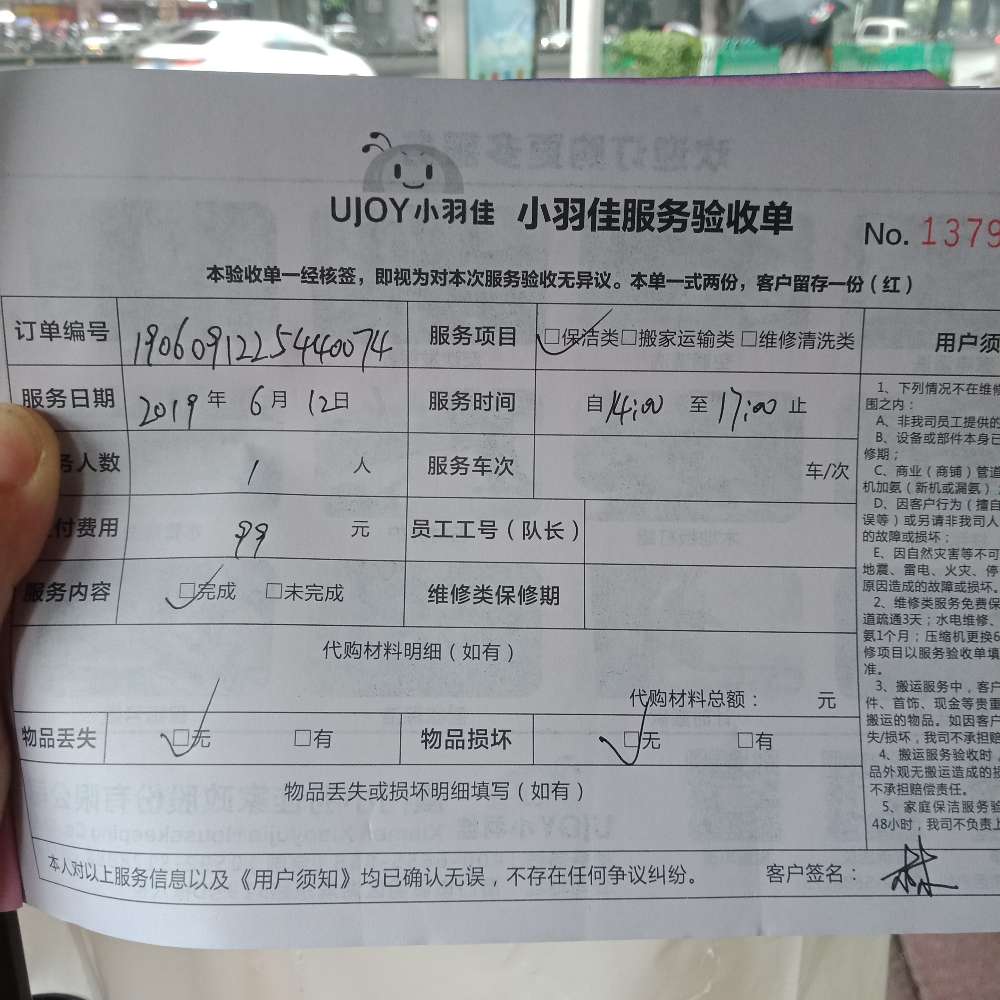 UJOY小羽佳 小羽佳服务验收单
No. 1379
本验收单一经核签，即视为对本次服务验收无异议。本单一式两份，客户留存一份（红）
订单编号 190609122544440074 服务项目 □保洁类□搬家运输类□维修清洗类
服务日期 2019年 6月 12日 服务时间 自14:00 至17:00止
务人数 1 人 服务车次 车/次
付费用 99 元 员工工号（队长）
服务内容 □完成 □未完成 维修类保修期
代购材料明细（如有）
代购材料总额： 元
物品丢失 □无 □有 物品损坏 □无 □有
物品丢失或损坏明细填写（如有）
本人对以上服务信息以及《用户须知》均已确认无误，不存在任何争议纠纷。 客户签名：
用户须
1、下列情况不在维修
围之内：
A、非我司员工提供的
B、设备或部件本身已
修期；
C、商业（商铺）管道
机加氨（新机或漏氨）；
D、因客户行为（擅自
误等）或另请非我司人
的故障或损坏；
E、因自然灾害等不可
地震、雷电、火灾、停
原因造成的故障或损坏。
2、维修类服务免费保
道疏通3天；水电维修、
氨1个月；压缩机更换6
修项目以服务验收单填
准。
3、搬运服务中，客户
件、首饰、现金等贵重
搬运的物品。如因客户
失/损坏，我司不承担赔
4、搬运服务验收时，
品外观无搬运造成的损
不承担赔偿责任。
5、家庭保洁服务验
48小时，我司不负责上